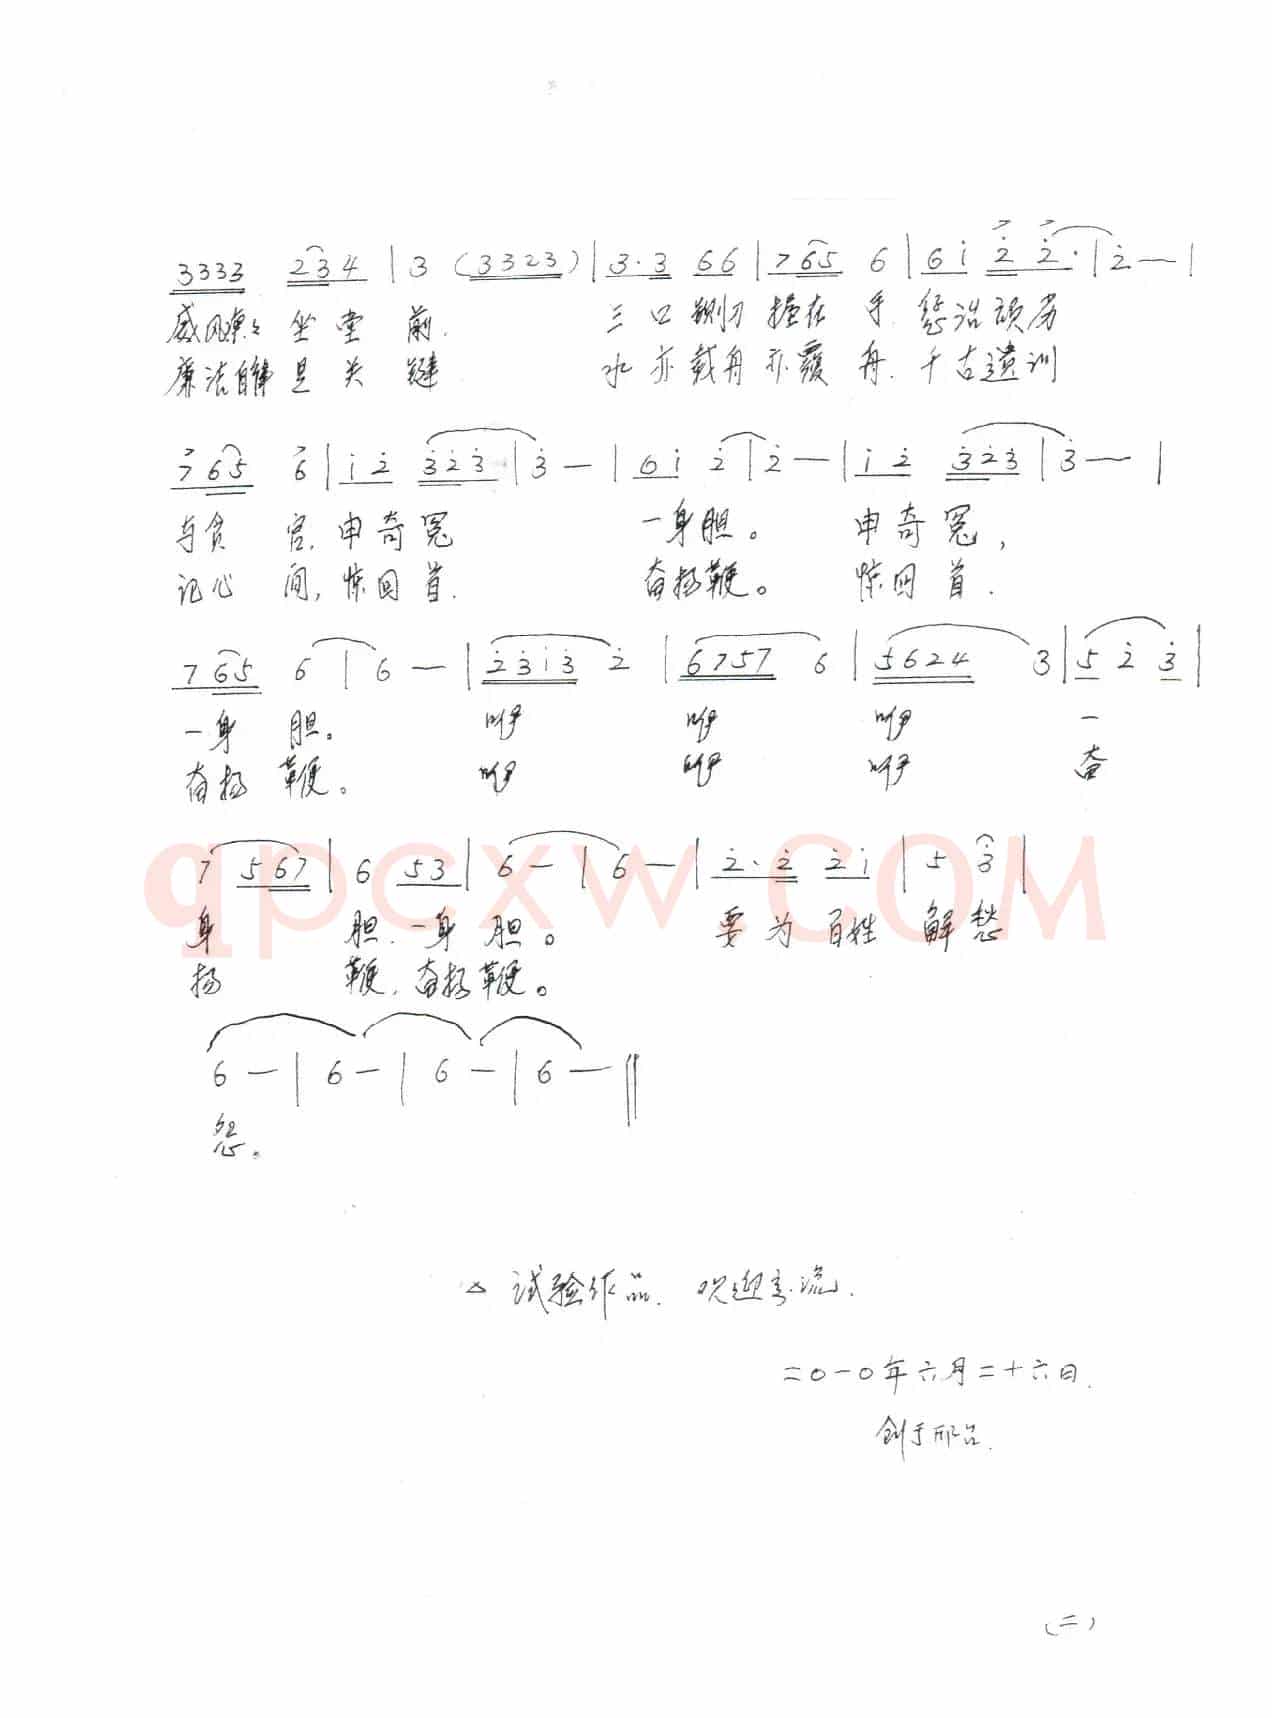 3333 234 | 3 (3323) | 3·3 66 | 765 6 | 6i 2 2· | 2 — |
威风凛々 坐堂 前. 三口铡刀 握在 手. 惩治顽劣
廉洁自律 是关 键 水亦载舟 亦覆 舟. 千古遗训
765 6 | i2 323 | 3 — | 6i 2 | 2 — | i2 323 | 3 — |
与贪 官, 申奇冤 一身胆。 申奇冤,
记心 间, 惊回首. 奋扬鞭。 惊回首.
765 6 | 6 — | 23i3 2 | 6757 6 | 5624 3 | 5 2 3 |
一身 胆。 咿 咿 咿 一
奋扬 鞭。 咿 咿 咿 奋
7 567 | 6 53 | 6 — | 6 — | 2·2 2i | 5 3 |
身 胆. 一身 胆。 要为百姓 解愁
扬 鞭. 奋扬鞭。
6 — | 6 — | 6 — | 6 — ||
怨。
△ 试验作品. 欢迎交流.
二〇一〇年六月二十六日.
创于邢台.
(二)
qpcxw.COM